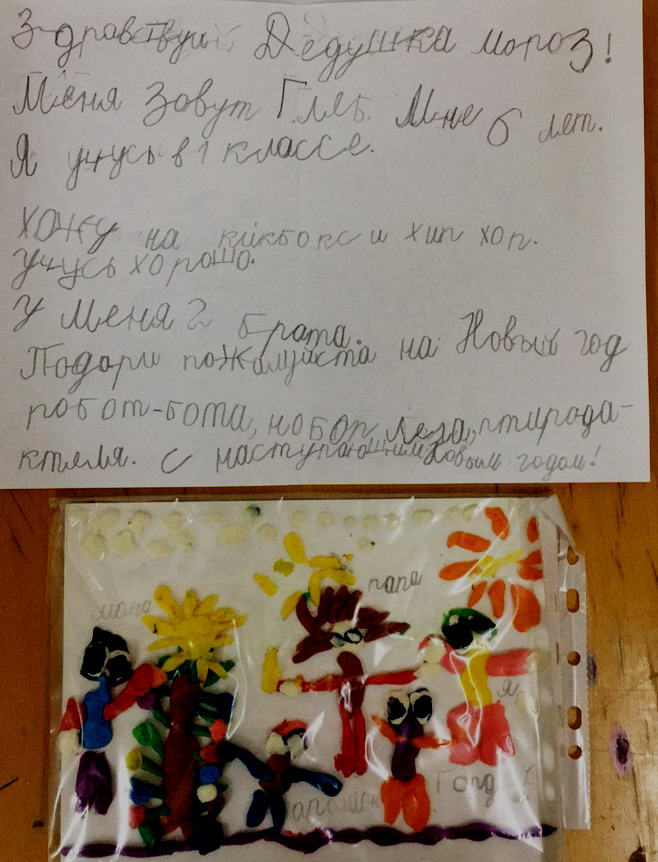 Здравствуй Дедушка мороз!
Меня Зовут Глеб. Мне 6 лет.
Я учусь в 1 классе.
хожу на кикбокс и хип хоп.
учусь хорошо.
У меня 2 брата.
Подари пожалуйста на Новый год
робот-бота, нобор Леза, птирода-
ктеля. с наступающим Новым годом!
папа
мама
я